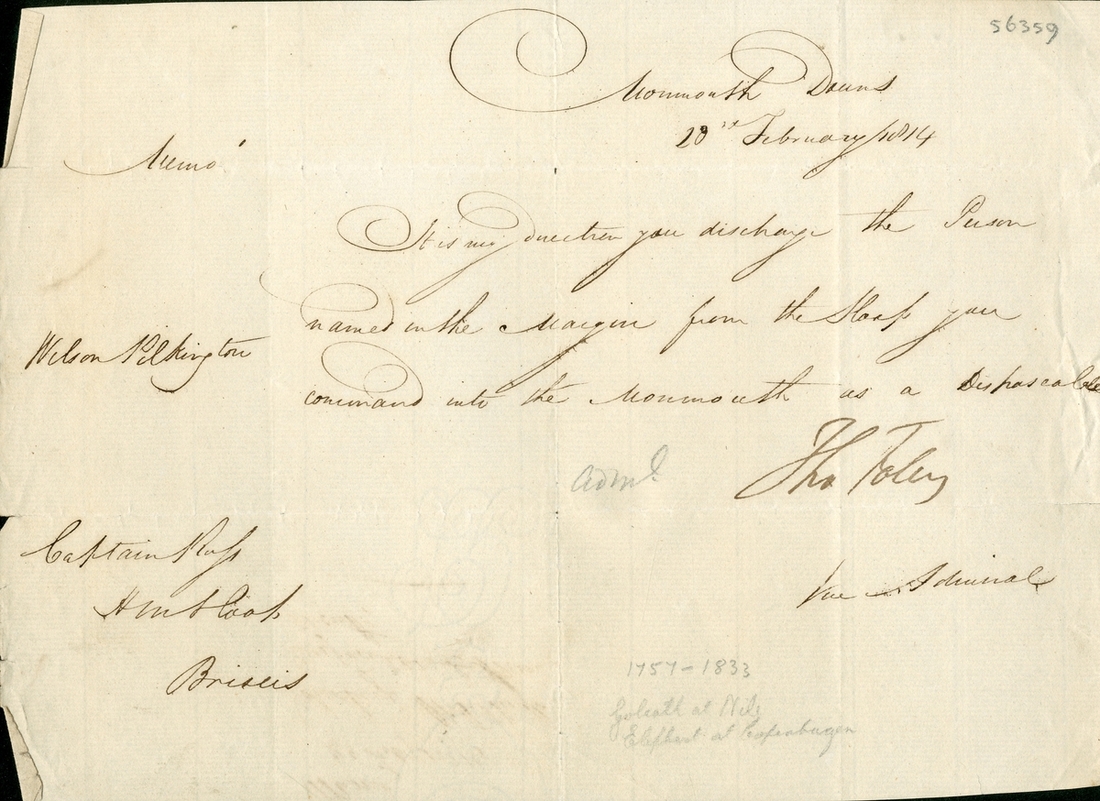 56359
Monmouth Downs
28th February 1814
Memo
It is my direction you discharge the Person
named in the Margin from the Sloop you
Wilson Pilkington
command into the Monmouth as a Disposeable
Tho Foley
Adml
Captain Ross
HM Sloop
Vice Admiral
Briseis
1757-1833
Goliath at Nile
Elephant at Copenhagen